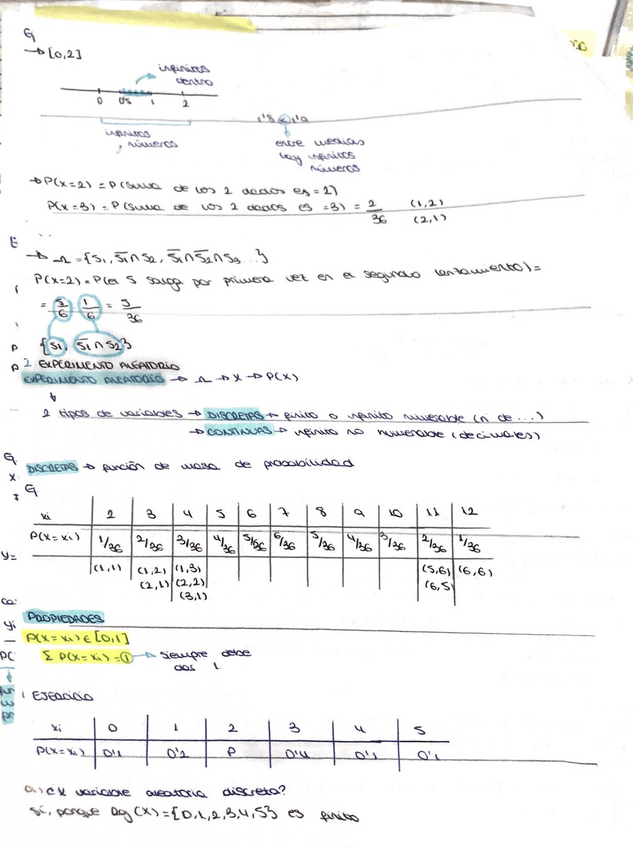 G
→ [0,2]
infinitos
dentro
0 0'5 1 2
1'8 1'9
infinitos
números
entre medias
hay infinitos
números
→ P(X=2) = P(suma de los 2 dados es = 2)
P(X=3) = P(suma de los 2 dados es = 3) = 2/36 (1,2)
(2,1)
E
→ Ω = {S1, S̅1∩S2, S̅1∩S̅2∩S3...}
P(X=2) = P(el 5 salga por primera vez en el segundo lanzamiento) =
= 5/6 · 1/6 = 5/36
{S1, S̅1∩S2}
2 EXPERIMENTO ALEATORIO
EXPERIMENTO ALEATORIO → Ω → X → P(X)
2 tipos de variables → DISCRETAS → finito o infinito numerable (n de...)
→ CONTINUAS → infinito no numerable (decimales)
DISCRETAS → función de masa de probabilidad
G
xi 2 3 4 5 6 7 8 9 10 11 12
P(X=xi) 1/36 2/36 3/36 4/36 5/36 6/36 5/36 4/36 3/36 2/36 1/36
(1,1) (1,2) (1,3) (5,6) (6,6)
(2,1) (2,2) (6,5)
(3,1)
y=
PROPIEDADES
P(X=xi) ∈ [0,1]
Σ P(X=xi) = 1 → siempre debe
dar 1.
1 EJERCICIO
xi 0 1 2 3 4 5
P(X=xi) 0'1 0'2 P 0'4 0'1 0'1
a) ¿X variable aleatoria discreta?
Sí, porque Img(X) = {0,1,2,3,4,5} es finito